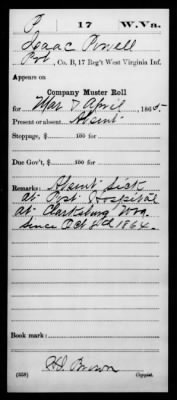 P | 17 | W.Va.
Isaac Powell
Pvt, Co. B, 17 Reg't West Virginia Inf.
Appears on
Company Muster Roll
for Mar & April, 1865
Present or absent Absent
Stoppage, $ 100 for
Due Gov't, $ 100 for
Remarks: Absent Sick
at Post Hospital
at Clarksburg W.Va.
since Oct 8th 1864.
Book mark:
H.J. Brown
(358) Copyist.